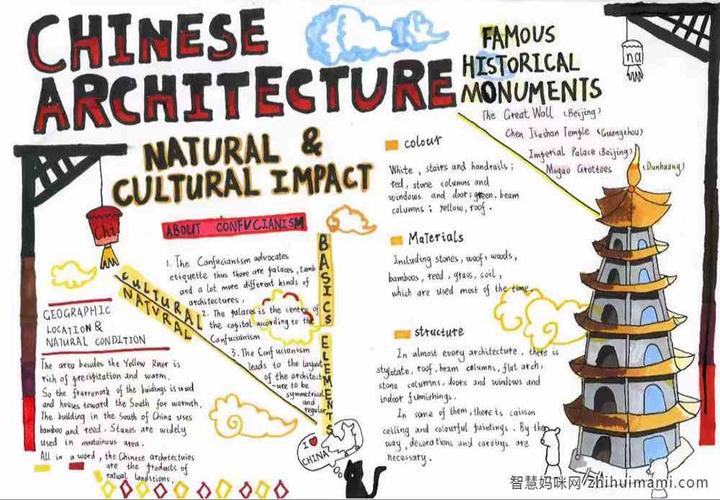 CHINESE
ARCHITECTURE
NATURAL &
CULTURAL IMPACT
FAMOUS
HISTORICAL
MONUMENTS
The Great Wall (Beijing)
Chen Temple (Guangzhou)
Imperial Palace (Beijing)
Mogao Grottoes (Dunhuang)
na
Chi
ABOUT CONFVCIANISM
1. The Confucianism advocates
etiquette thus there are palaces, tamb
and a lot more different kinds of
architectures.
2. The palaces is the centre of
the capital according to the
Confucianism
3. The Confucianism
leads to the largest
of the architect
-ure to be
symmetrical
and
regular
BASICS ELEMENTS
CULTURAL
NATVRAL
GEOGRAPHIC
LOCATION &
NATURAL CONDITION
The area besides the Yellow River is
rich of precipitation and warm.
So the framework of the buidings is wood
and houses toward the South for warmth.
The building in the South of China uses
bamboo and reed. Stones are widely
used in area.
All in a word, the Chinese architectvies
are the products of
natural landitions.
colour
White, stairs and handrails;
red, stone columns and
windows and door; green, beam
columns; yellow, roof.
Materials
Including stones, woof, woods,
bamboos, reed, grass, soil,
which are used most of the time.
structure
In almost every architecture, there is
roof, beam columns, flat arch,
stone columns, doors and windows and
indoor furnishings.
In some of them, there is caisson
ceiling and colourful paintings. By the
way, decorations and carvings are
necessary.
I
CHINA
智慧妈咪网 zhihuimami.com